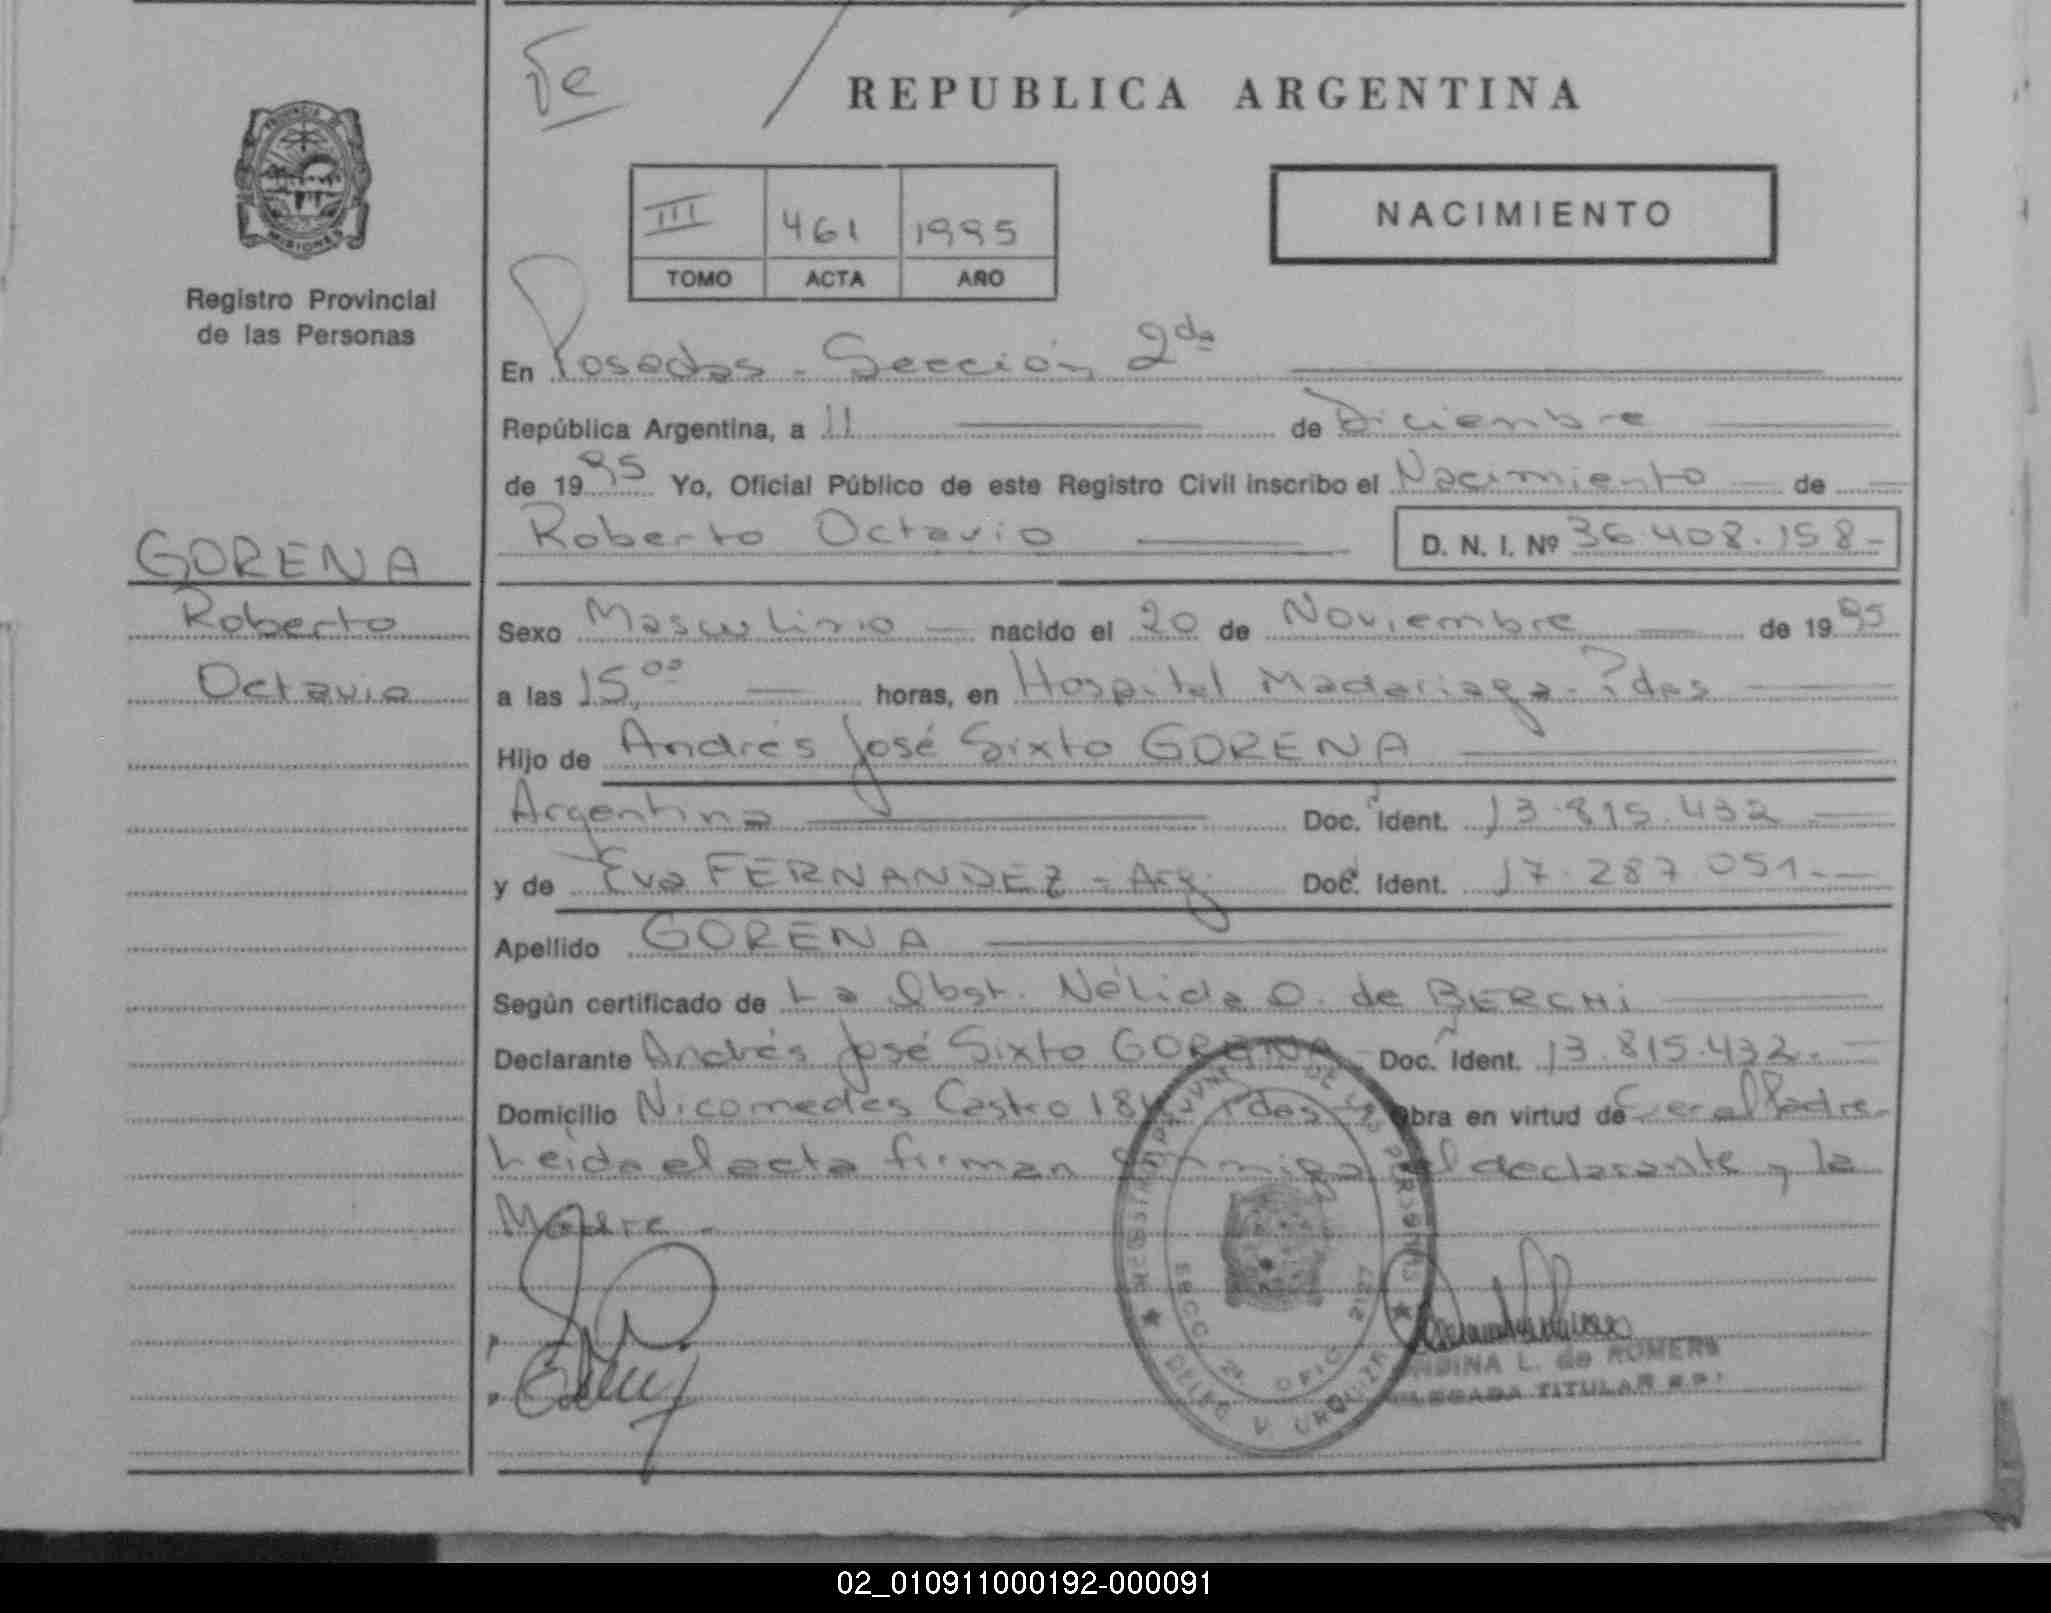 Je
REPUBLICA ARGENTINA
PROVINCIA DE MISIONES
Registro Provincial
de las Personas
III 461 1995
TOMO ACTA AÑO
NACIMIENTO
En Posadas - Sección 2da
República Argentina, a 11 de Diciembre
de 1995 Yo, Oficial Público de este Registro Civil inscribo el Nacimiento de
Roberto Octavio D. N. I. Nº 36.408.158-
GORENA
Roberto
Octavio
Sexo Masculino nacido el 20 de Noviembre de 1995
a las 15,00 horas, en Hospital Madariaga - Pdas
Hijo de Andrés José Sixto GORENA
Argentina Doc. Ident. 13.815.432
y de Eva FERNANDEZ - Arg. Doc. Ident. 17.287.051.-
Apellido GORENA
Según certificado de La Obst. Nélida O. de BERCHI
Declarante Andrés José Sixto GORENA Doc. Ident. 13.815.432.
Domicilio Nicomedes Castro Pdas Obra en virtud de Ser el Padre.
Leida el acta firman conmigo el declarante y la
Madre.-
REGISTRO PROVINCIAL DE LAS PERSONAS
SECC. 2ª OFIC. 2127
DELEG. V. URQUIZA
L. de ROMERO
DELEGADA TITULAR R.P.
02_010911000192-000091